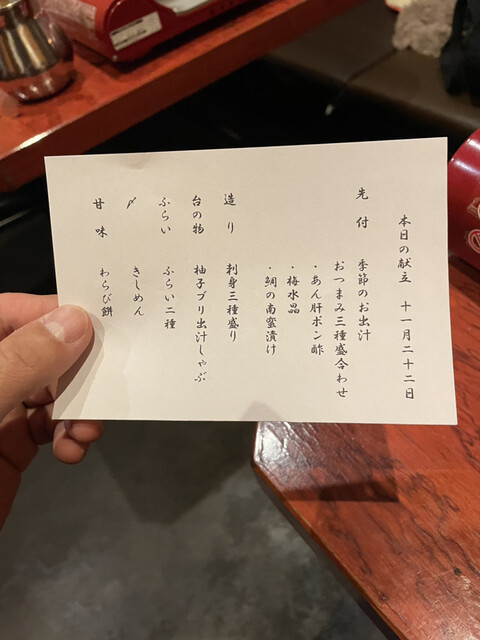 本日の献立　十一月二十二日
先付　季節のお出汁
おつまみ三種盛合わせ
・あん肝ポン酢
・梅水晶
・鯛の南蛮漬け
造り　刺身三種盛り
台の物　柚子ブリ出汁しゃぶ
ふらい　ふらい二種
〆　きしめん
甘味　わらび餅